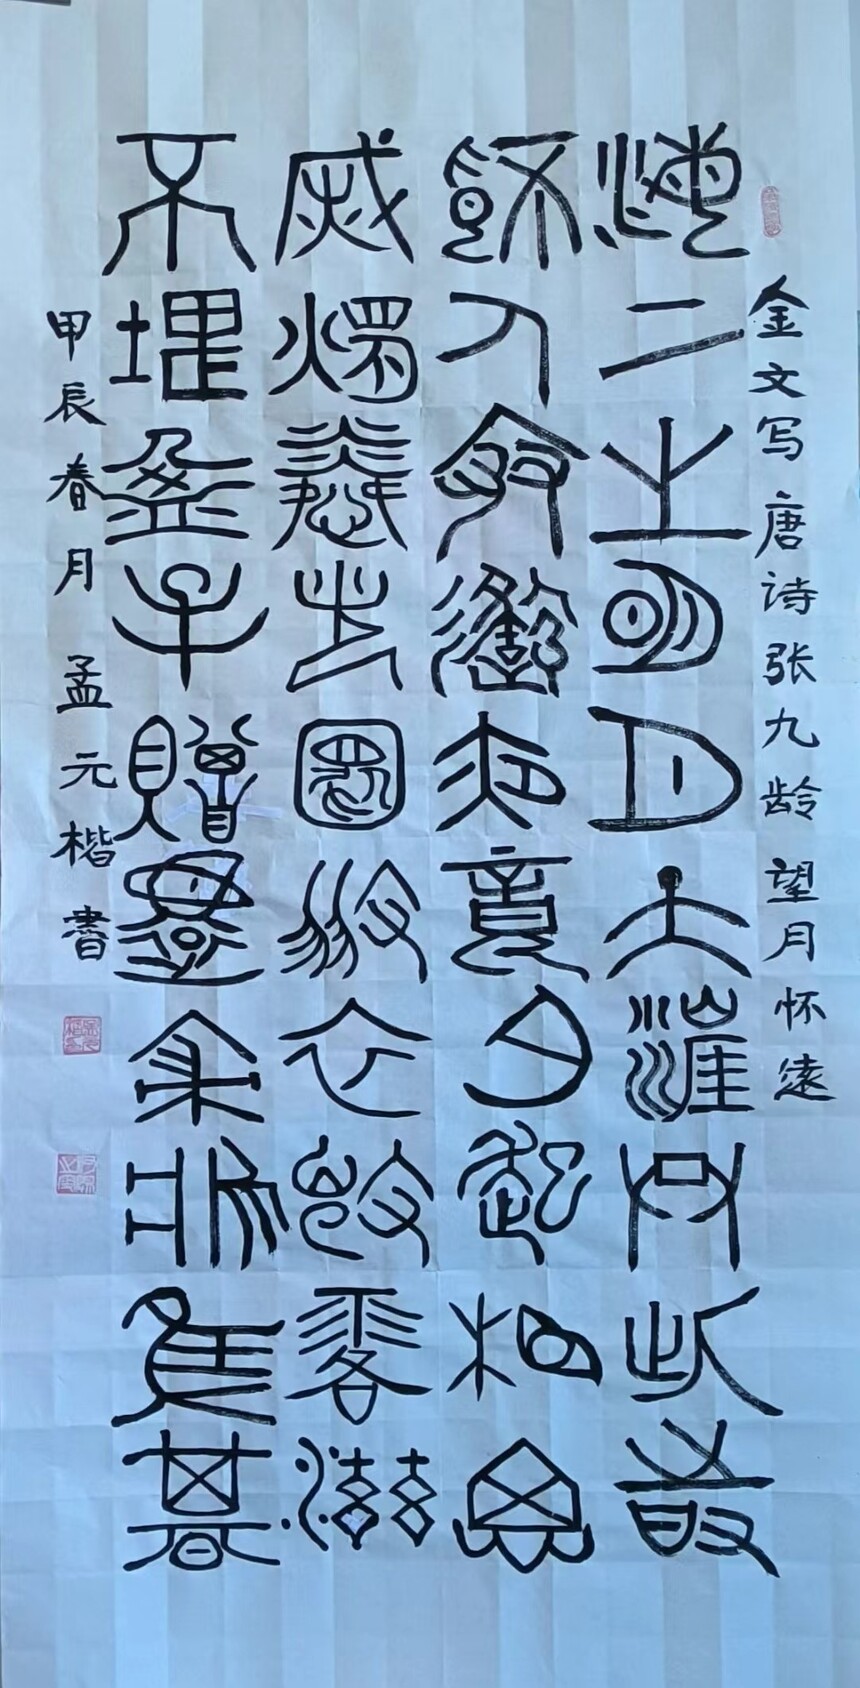 金文写唐诗张九龄望月怀遠
海上生明月天涯共此時
情人怨遙夜竟夕起相思
滅燭憐光滿披衣覺露滋
不堪盈手贈還寢夢佳期
甲辰春月孟元楷書